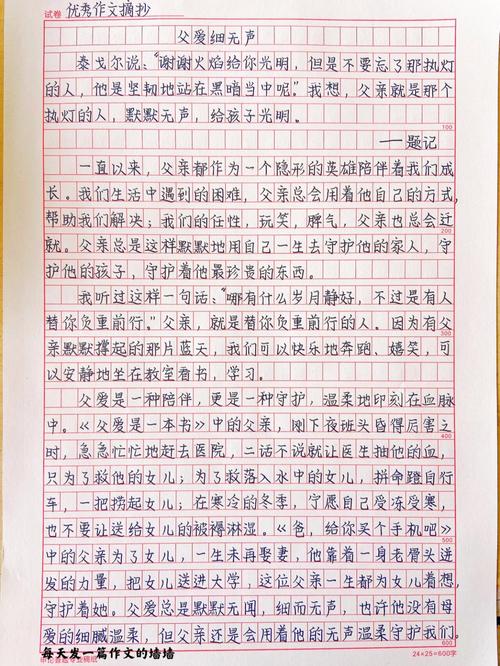 试卷 优秀作文摘抄
父爱细无声
泰戈尔说:“谢谢火焰给你光明,但是不要忘了那执灯
的人,他是坚韧地站在黑暗当中呢。”我想,父亲就是那个
执灯的人,默默无声,给孩子光明。
100
——题记
一直以来,父亲都作为一个隐形的英雄陪伴着我们成
长。我们生活中遇到的困难,父亲总会用着他自己的方式,
帮助我们解决;我们的任性,玩笑,脾气,父亲也总会迁
200
就。父亲总是这样默默地用自己一生去守护他的家人,守
护他的孩子,守护着他最珍贵的东西。
我听过这样一句话:“哪有什么岁月静好,不过是有人
替你负重前行。”父亲,就是替你负重前行的人。因为有父
300
亲默默撑起的那片蓝天,我们可以快乐地奔跑、嬉笑,可
以安静地坐在教室看书,学习。
父爱是一种陪伴,更是一种守护,温柔地印刻在血脉
中。《父爱是一本书》中的父亲,刚下夜班头昏得厉害之
400
时,急急忙忙地赶去医院,二话不说就让医生抽他的血,
只为了救他的女儿;为了救落入水中的女儿,拼命蹬自行
车,一把捞起女儿;在寒冷的冬季,宁愿自己受冻受寒,
也不要让送给女儿的被褥淋湿。《爸,给你买个手机吧》
500
中的父亲为了女儿,一生未再娶妻,他靠着一身老骨头迸
发的力量,把女儿送进大学,这位父亲一生都为女儿着想,
守护着她。父爱总是默默无闻,细而无声,也许他没有母
爱的细腻温柔,但父亲还是会用着他的无声温柔守护我们。
每天发一篇作文的墙墙
24×25=600字